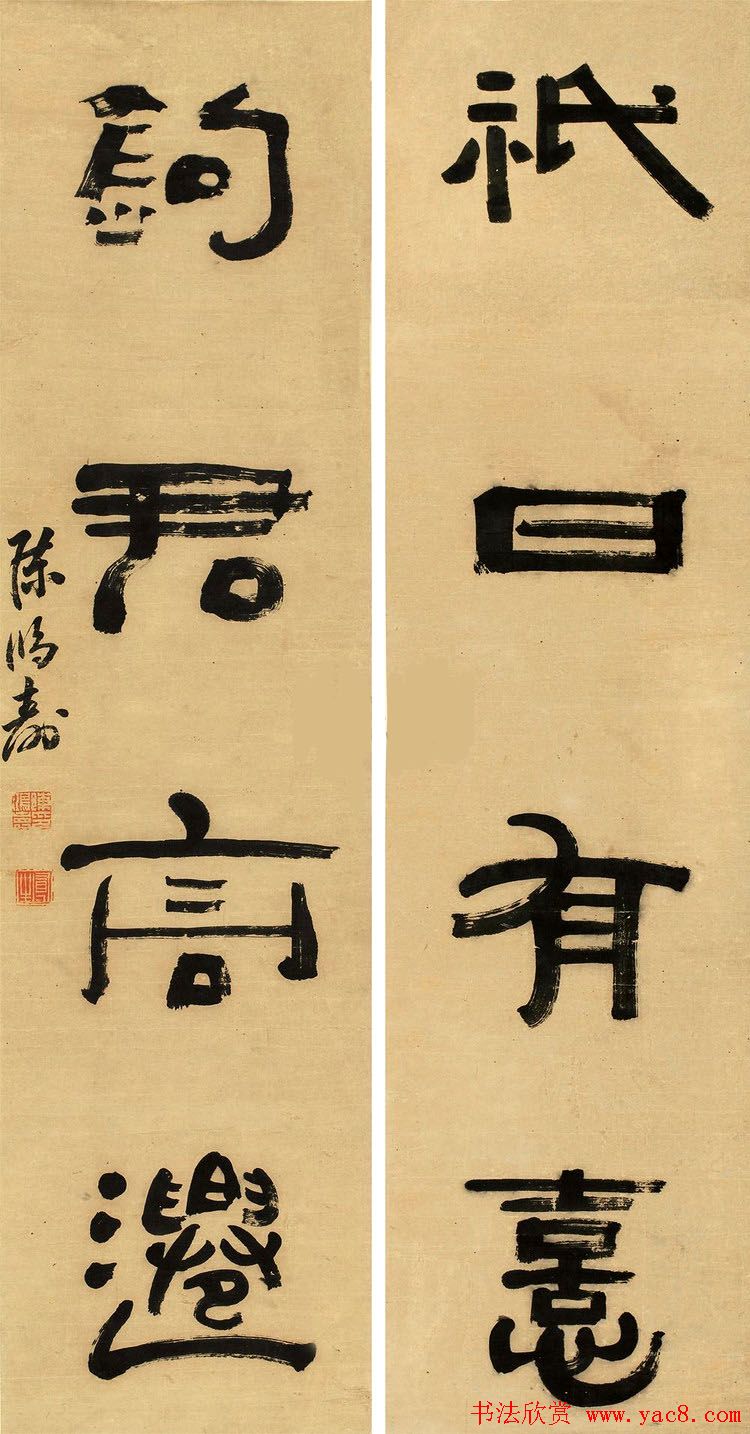 祇日有憙
駒君高遷
陳鴻壽
书法欣赏 www.yac8.com